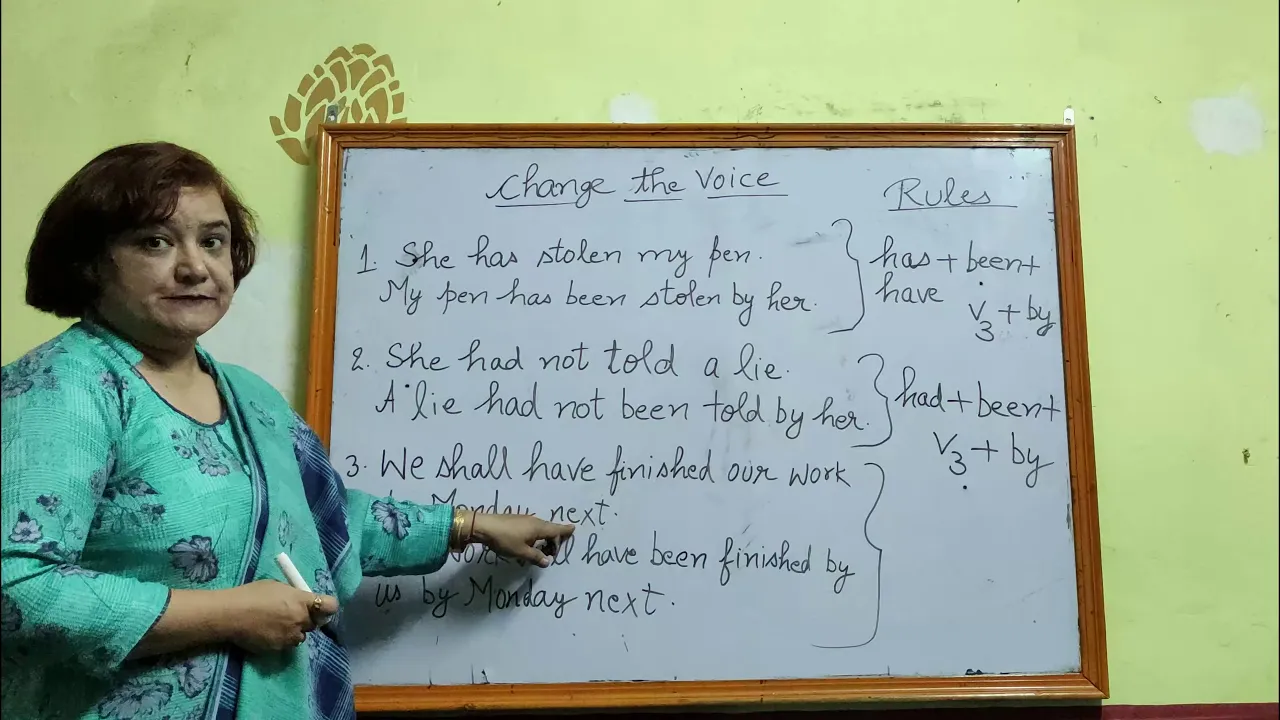 Change the Voice
Rules
1. She has stolen my pen.
My pen has been stolen by her.
has + been +
have
V3 + by
2. She had not told a lie.
A lie had not been told by her.
had + been +
V3 + by
3. We shall have finished our work
Monday next.
have been finished by
us by Monday next.